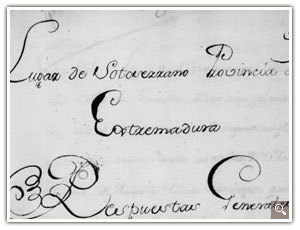 Lugar de Sotoserrano Provincia
Extremadura
Respuestas Generales